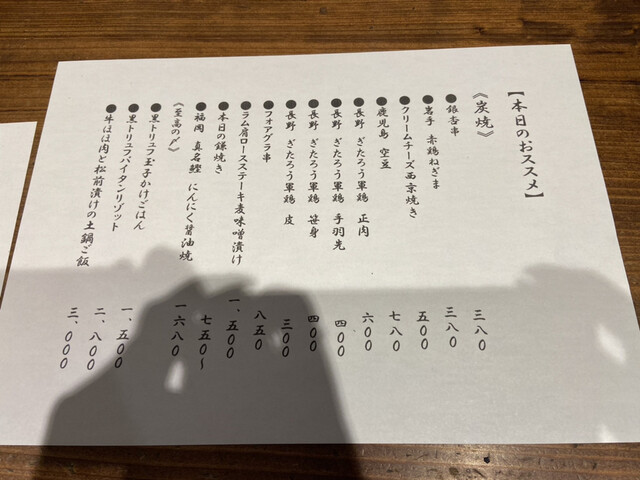 【本日のおススメ】
《炭焼》
●銀杏串 三八〇
●岩手 赤鶏ねぎま 三八〇
●クリームチーズ西京焼き 五〇〇
●鹿児島 空豆 七八〇
●長野 ぎたろう軍鶏 正肉 六〇〇
●長野 ぎたろう軍鶏 手羽先 四〇〇
●長野 ぎたろう軍鶏 笹身 四〇〇
●長野 ぎたろう軍鶏 皮 三〇〇
●フォアグラ串 八五〇
●ラム肩ロースステーキ麦味噌漬け 一、五〇〇
●本日の鎌焼き 七五〇〜
●福岡 真名鰹 にんにく醤油焼 一六八〇
《至高の〆》
●黒トリュフ玉子かけごはん 一、五〇〇
●黒トリュフパイタンリゾット 二、八〇〇
●牛ほほ肉と松前漬けの土鍋ご飯 三、〇〇〇